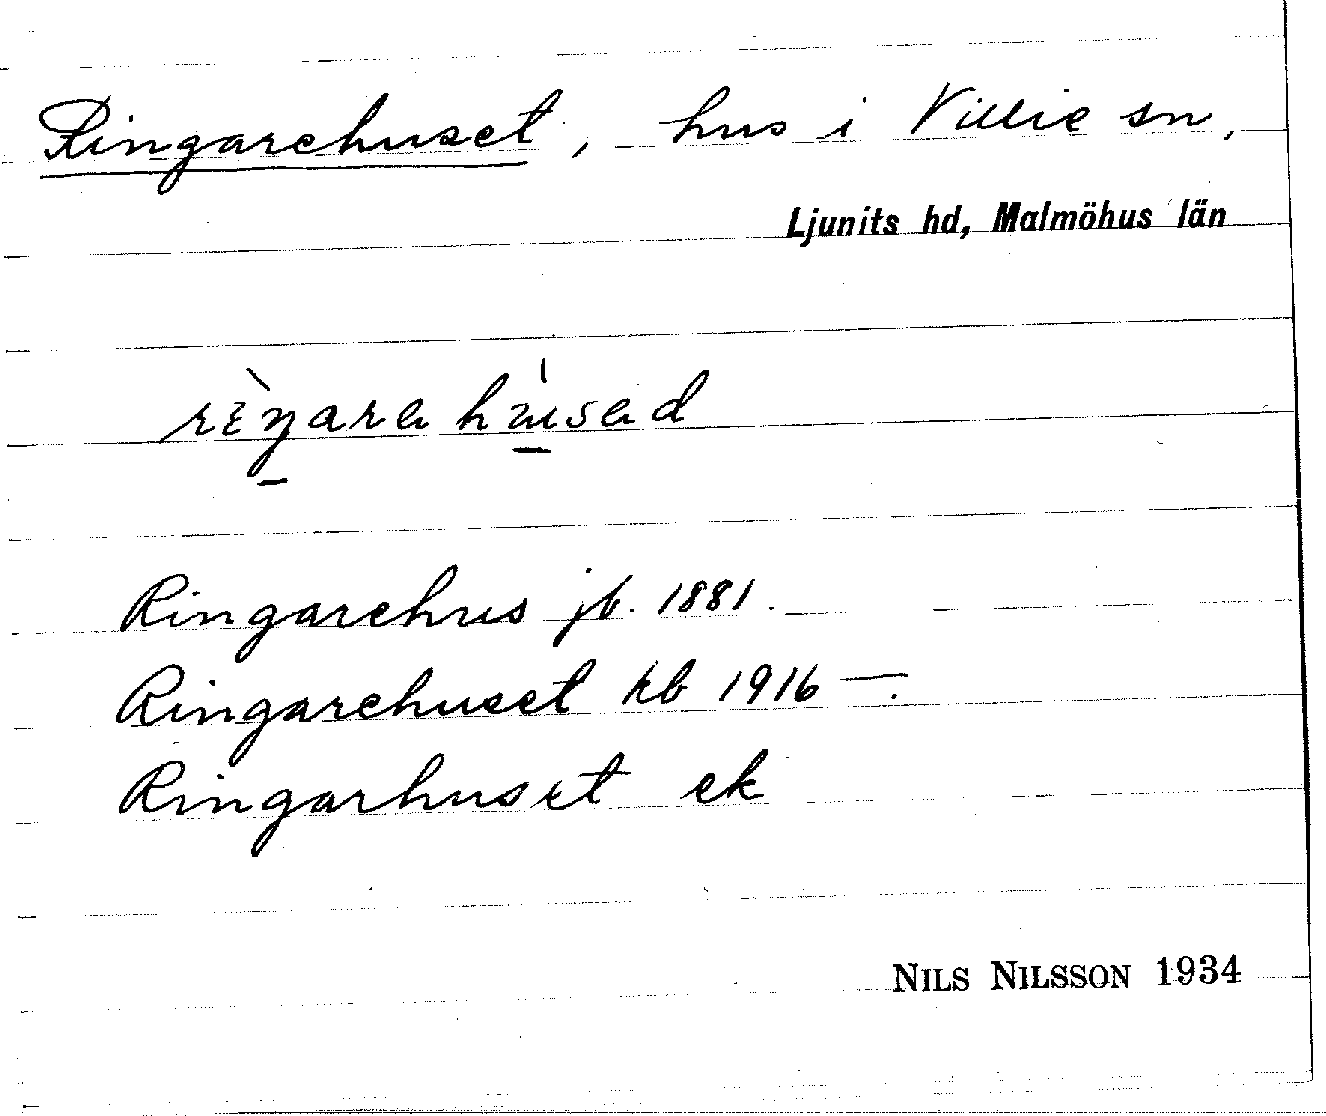 Ringarehuset, hus i Villie sn,
Ljunits hd, Malmöhus län
Ringarehus jb. 1881.
Ringarehuset kb 1916 —.
Ringarhuset ek
NILS NILSSON 1934